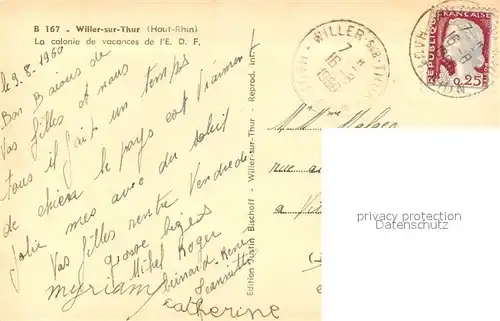 B 167 - Willer-sur-Thur (Haut-Rhin)
La colonie de vacances de l'E. D. F.
le 9.8.1960
Bon Baisers de
Vos filles et nous
tous il fait un temps
de chien le pays est vraiment
jolie mes avec du soleil
Vos filles rentre Vendredi
grosse bises
Michel Roger
Bernard René
Jeannette
myriam
Catherine
Edition Justin Bischoff - Willer-sur-Thur - Reprod. int.
WILLER S/R THUR
HAUT-RHIN
7 H
16 -8
1960
REPUBLIQUE FRANÇAISE
0,25
7 H
16 -8
Mr Mme
rue
a
privacy protection
Datenschutz